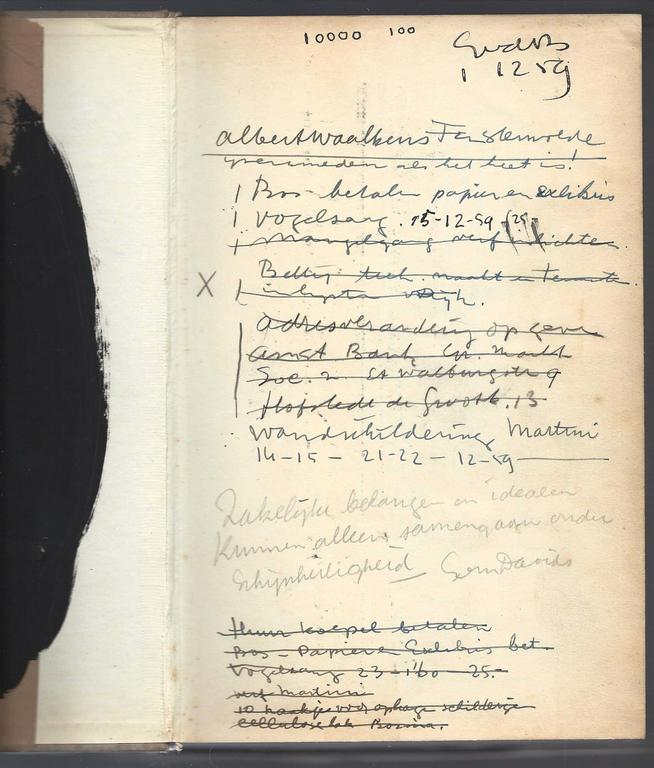 10000 100
1 12 59
albert waalkens Finsterwolde
als het heet is!
Bos betalen papier en exlibris
Vogelsang. 15-12-59 25,-
verf
Betty tech. naakt en
adresverandering opgeven
Amst Bank Gr. Markt
Soc. 2. St Walburgstr 9
Hofstede de Grootk. 13
Wandschildering Martini
14-15- 21-22-12-59
Zakelijke belangen en idealen
kunnen alleen samengaan onder
schijnheiligheid
Huur koepel betalen
Bos - Papier en Exlibris bet.
Vogelsang 23-1'60 25.-
verf Martini
10 haakjes voor ophage schilderije
celluloselak Bosma.